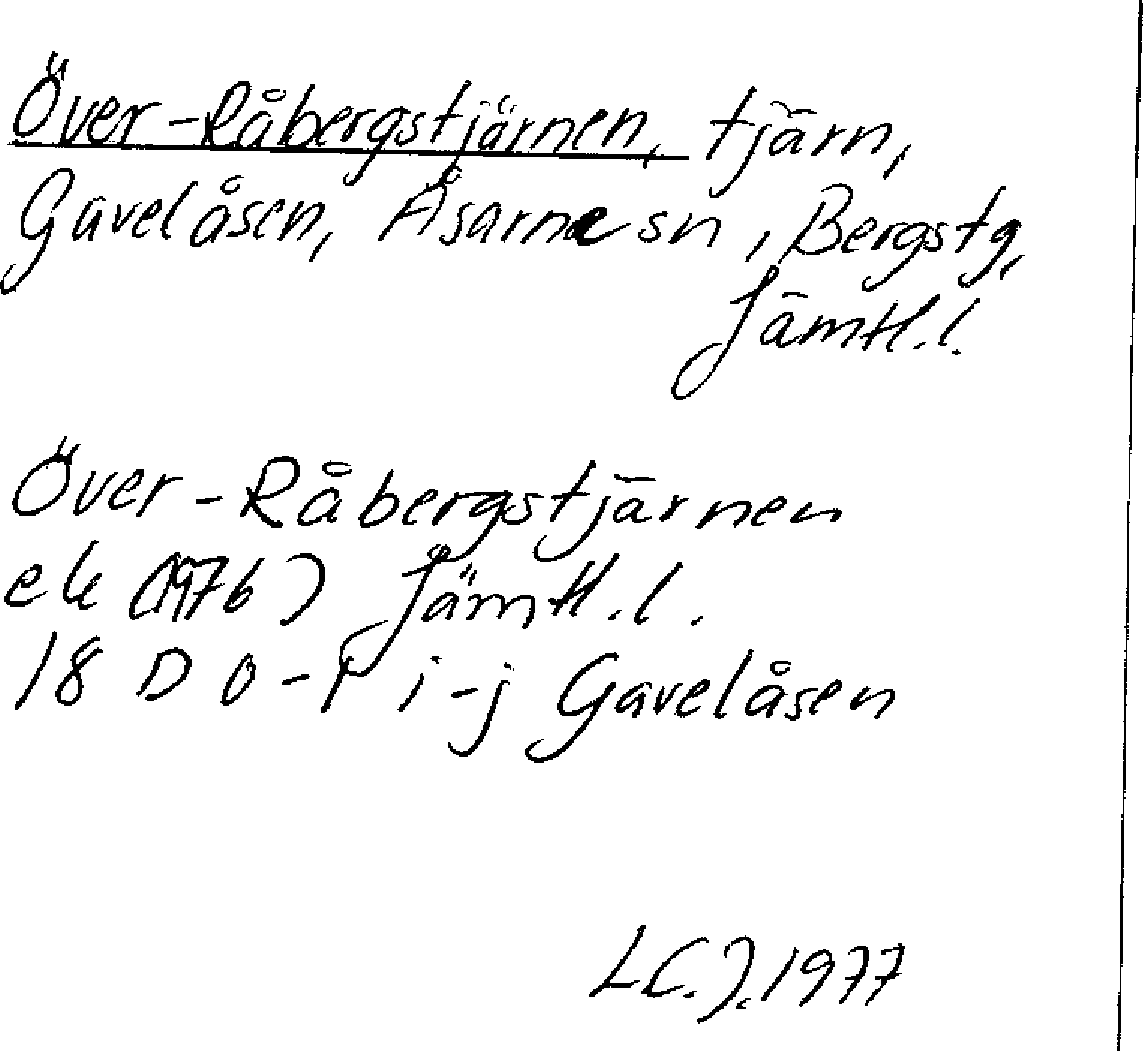 Över-Råbergstjärnen, tjärn,
Gavelåsen, Åsarne sn, Bergs tg,
Jämtl.l.
Över-Råbergstjärnen
ek (1976) Jämtl.l.
18 D 0-1 i-j Gavelåsen
LC.J.1977